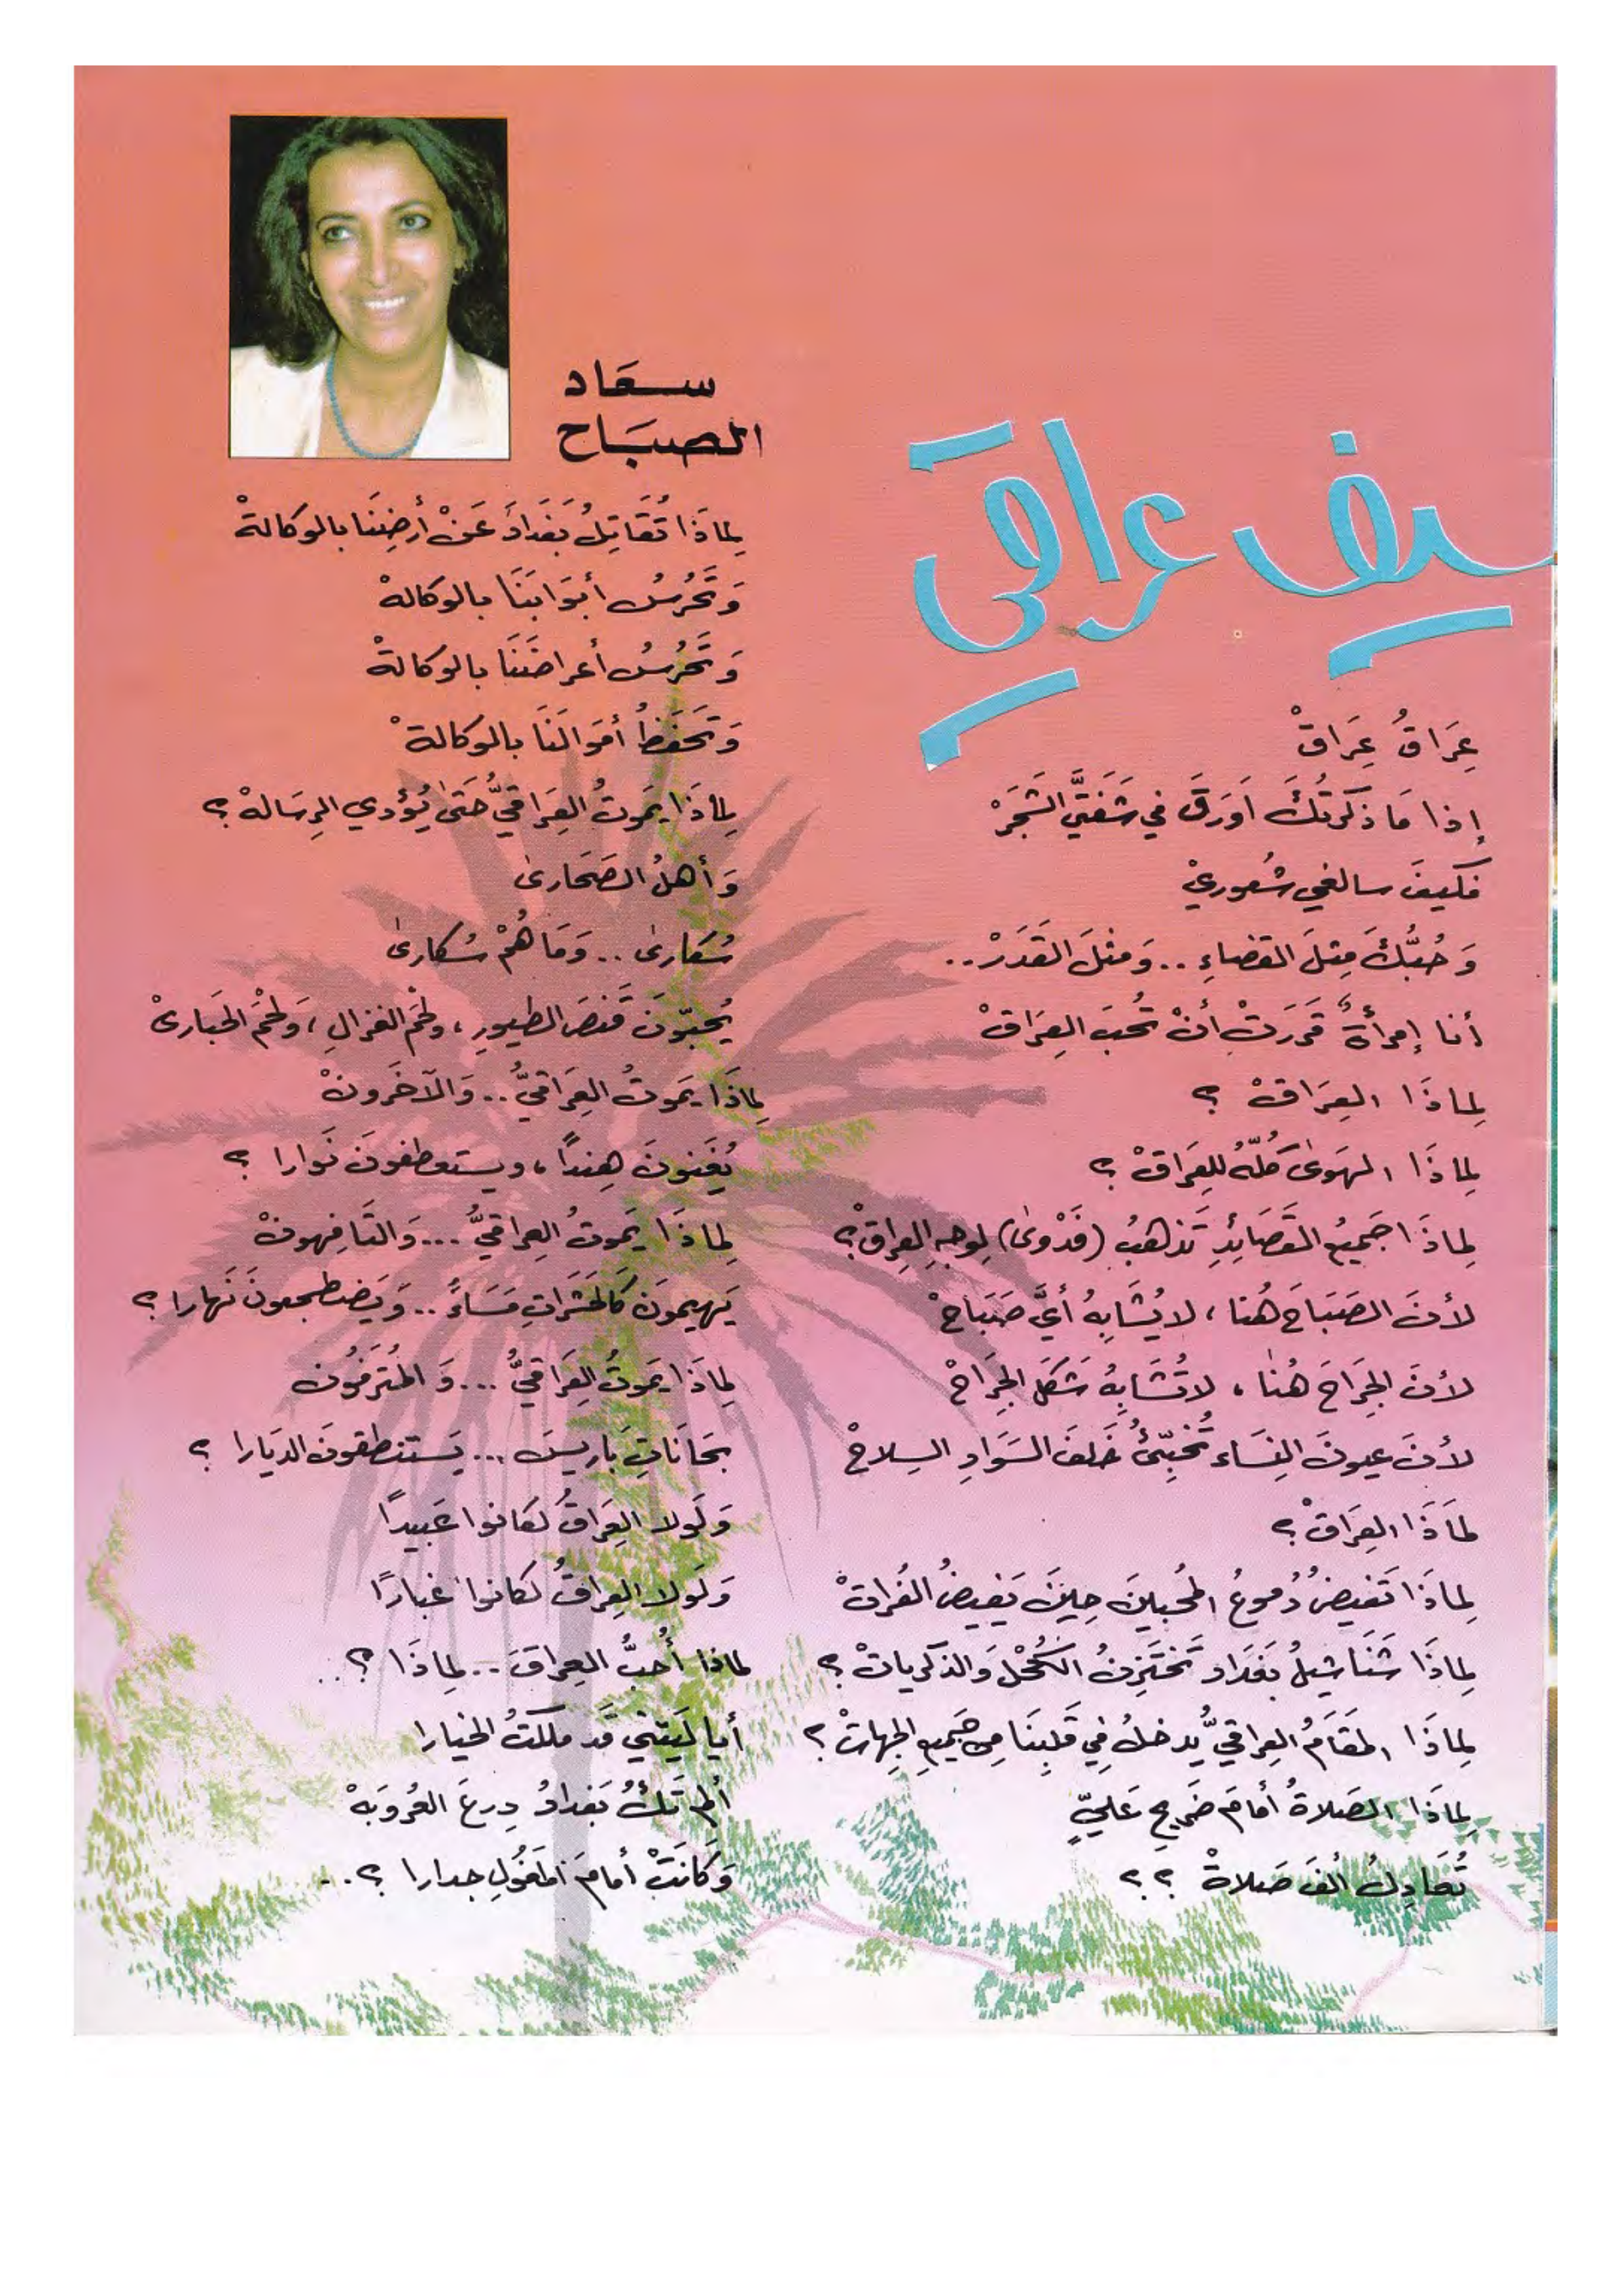 سيف عراقي
سعَاد
الصبَاح
عِرَاقُ عِرَاقْ
إذا مَا ذكرتُكَ أورَقَ في شَفَتَيَّ الشَجَرْ
فكيفَ سالغي شُعوريْ
وَحُبُّكَ مِثلَ القضاءِ .. وَمثلَ القَدَرْ ..
أنا إمرأةٌ قررَتْ أنْ تُحبَ العِرَاقْ
لِماذَا العِرَاقْ ؟
لِماذَا الهَوَىٰ كُلّهُ للعِرَاقْ ؟
لِماذَا جَميعُ القَصَائِدِ تَذهَبُ (فَدْوىٰ) لِوجهِ العِراقْ؟
لأنَ الصَبَاحَ هُنا ، لا يُشَابِهُ أيَّ صَبَاحْ
لأنَ الجِرَاحَ هُنا ، لا تُشَابِهُ شَكلَ الجِرَاحْ
لأنَ عيونَ النِسَاء تُخبِّئُ خَلفَ السَوَادِ السِلاحْ
لماذَا العِرَاقْ ؟
لِماذَا تَفيضُ دُموعُ المُحبينَ حِينَ يَفيضُ الفُراتْ
لِماذَا شَنَاشيلُ بغدَاد تَختَزِنُ الكُحْلَ وَالذكرياتْ ؟
لِماذَا المَقَامُ العِراقيُّ يدخلُ في قَلبِنَا مِن جَميعِ الجِهاتْ ؟
لِماذَا الصَلاةُ أمَامَ ضَريحِ عَليٍّ
تُعَادِلُ ألفَ صَلاةْ ؟ ؟
لِماذَا تُقَاتِلُ بَغدَادَ عَنْ أرضِنَا بالوكالةْ
وَتَحْرُسُ أبوَابَنَا بالوكالهْ
وَتَحْرُسُ أعراضَنَا بالوكالةْ
وَتَحفَظُ أموَالَنَا بالوكالةْ
لِماذَا يَموتُ العِرَاقيُّ حَتىٰ يُؤدي الرِسَالهْ ؟
وَأهلُ الصَحَارىٰ
سُكارىٰ .. وَمَا هُمْ سُكارىٰ
يُحبّونَ قَنصَ الطيورِ ، ولحْمَ الغزالِ ، وَلحْمَ الحَبارىْ
لِماذَا يَموتُ العِرَاقيُّ .. وَالآخَرونْ
يُغَنونَ هِنداً ، ويستعطفونَ نَوارا ؟
لِماذَا يَموتُ العِراقيُّ ... وَالتَافِهونْ
يَهيمونَ كَالحَشَرَاتِ مَسَاءً .. وَيَضطجعونَ نَهارا ؟
لِماذَا يَموتُ العِرَاقيُّ ... وَالمُترَفُون
بِحَانَاتِ بَاريسَ ... يَستنطقونَ الدِيَارا ؟
وَلَولا العِرَاقُ لكانوا عَبيدًا
وَلَولا العِراقُ لكانوا غبارًا
لماذا أُحِبُّ العِراقَ .. لِماذَا ؟ ..
أيا لَيتَني قَد ملكتُ الخيارا
ألم تَكُ بَغدادُ دِرعَ العُروَبَهْ
وَكانَتْ أمامَ المَغولِ جدارا ؟ ..